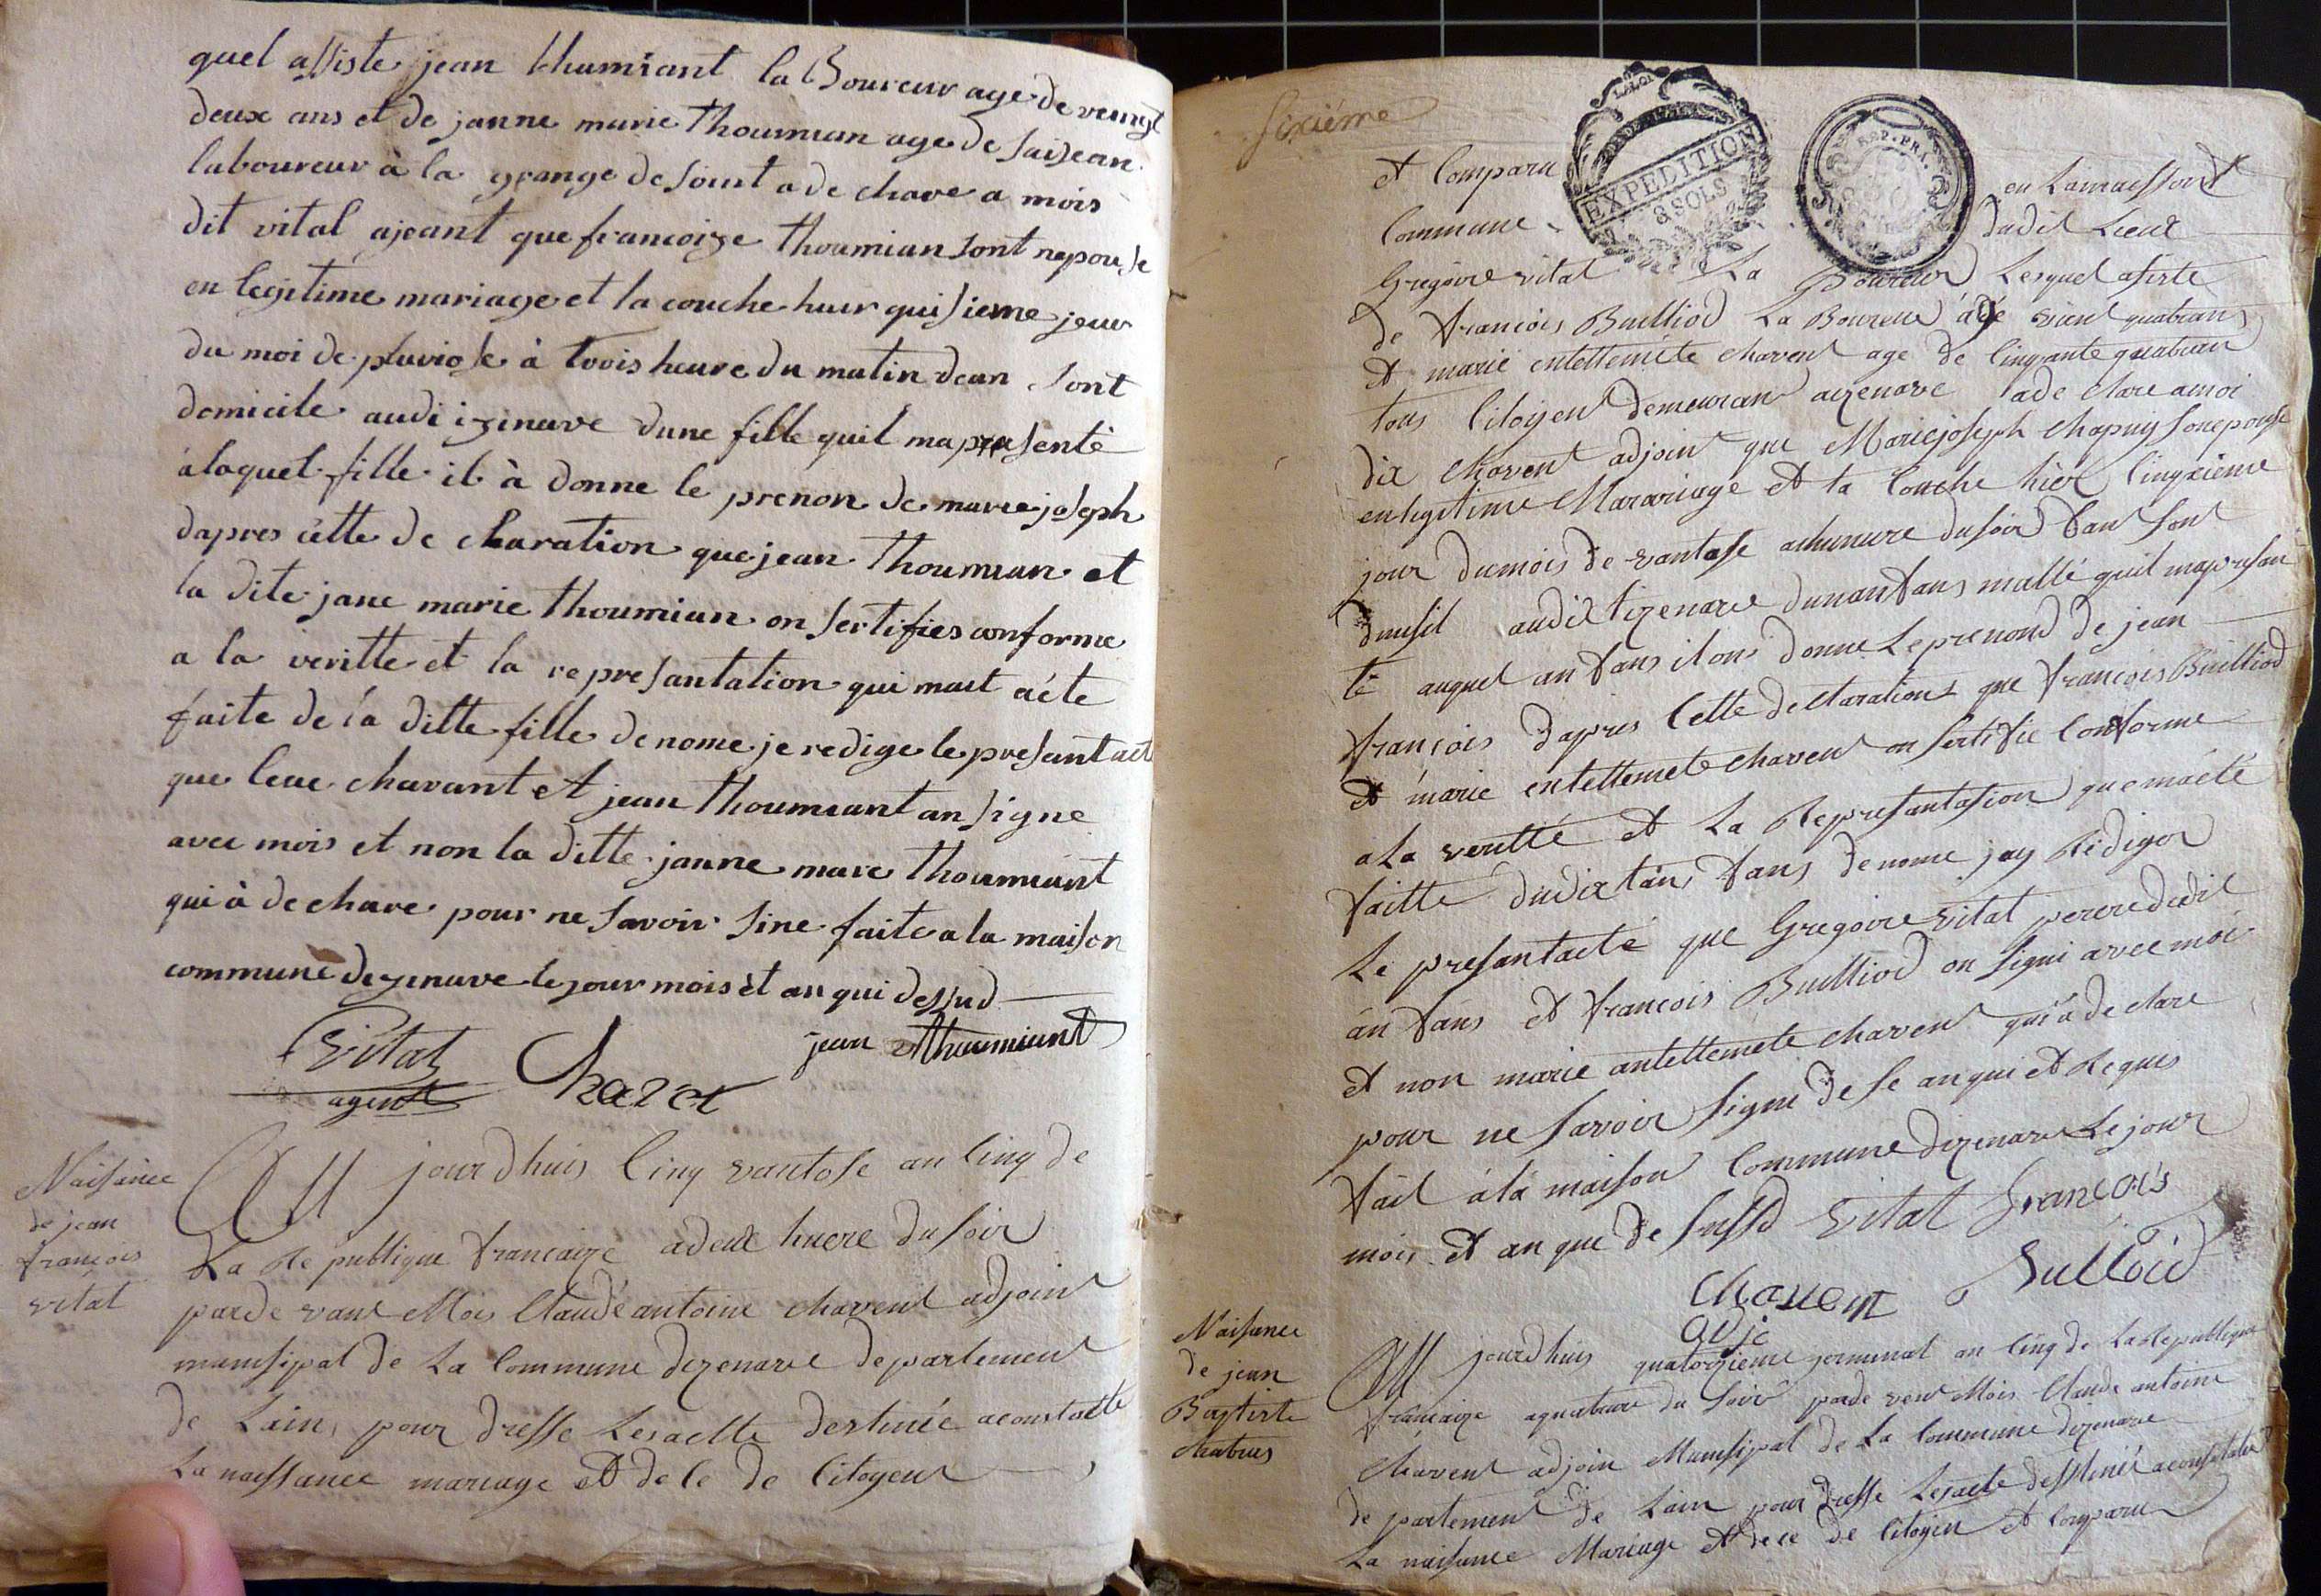 quel assiste jean thumiant la Boureur age de vengt
deux ans et de janne marie thoumian age de saisean
laboureur à la grange de sont a de chare a mois
dit vital ajeant que francoize thoumian sont repouse
en legitime mariage et la couche huir quisieme jour
du moi de pluviose à trois heure du matin dean sont
domicile audi izinave dune fille quil ma presenté
a laquel fille il à donne le prenon de marie joseph
dapres cette de charation que jean thoumian et
la dite jane marie thoumian on sertifies conforme
a la veritte et la representation qui mait aéte
faite de la ditte fille denome je redige le presant act
que leuc chavant et jean thoumiant an signe
avec mois et non la ditte janne mare thoumiant
qui à dechare pour ne savoir sine faite a la maison
commune dezinave le jour mois èt an qui dessud
Vital Chavent jean thoumiant
agent
Naisance
de jean
françois
vital
Au jourdhuis Cinq vantose an Cinq de
La Republique francaize adeux huere du soir
parde vant Mois Claude antoine chavent adjoint
munisipal de La Commune dizenave departement
de Lain, pour dresse Lesactte destinée aconstatte
La naissance mariage et dece de Citoyent
sixiéme
LA LOI
EXPEDITION
8 SOLS
REP. FRA.
et Comparu en Lamaisson
Commune dudit Lieux
Gregoire vital La Boureur Lesquel asiste
de francois Builliod La Boureur ágé vient quatrans
et marie entettemete chavent age de Cinqante quatran
tous Citoyent demeuran aizenave ade clare amoi
dix chavent adjoint que Marie joseph Chapuy son epouse
en legitime Marariage et ta Couche hier Cinqzieme
jour dumois de vantose ahuneure du soir dant sont
dmisil audit izenave dunanfans mallé quil mapresan
té auquel anfans il on donne Le prenond de jean
françois dapres Cette declarations que francois Builliod
et marie entettemete chavent on sertifie Conforme
ala veritté et La Represantasion que maeté
faitte dudit anfans denome jay Rédiger
Le presantacte que Gregoire vital perere dudit
ánfans et francois Builliod on signi avec moi
et non marie antettemete chavent qui à de clare
pour ne savoir signe de se anqui et Requis
fait á la maison Commune dizenave Le jour
mois et an que de sussd Vital françois
Chavent Bulloid
adje
Naisance
de jean
Baptiste
Au jourdhuis quatorzieme jerminal an Cinq de La Republique
francaize aquatrure du soir parde vent Mois Claude antoine
chavent adjoin Munisipal de La Commune dizenave
de partement de Lain pour dresse Lesacte desstinés aconstater
La naisance Mariage et dece de Citoyen et Comparu